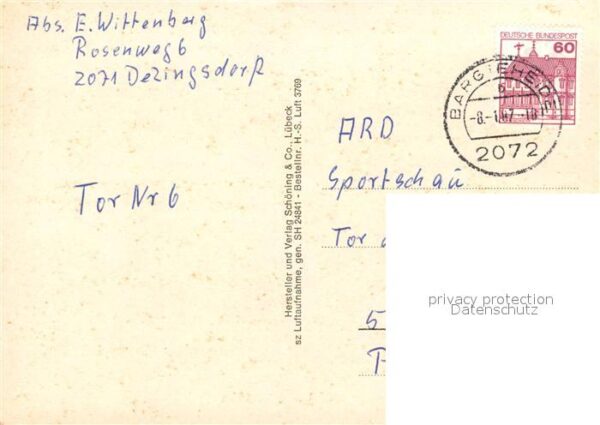 Abs. E. Wittenberg
Rosenweg 6
2071 Delingsdorf
Tor Nr 6
Hersteller und Verlag Schöning & Co., Lübeck
sz Luftaufnahme, gen. SH 24841 - Bestellnr. H.-S. Luft 3769
DEUTSCHE BUNDESPOST
60
BARGTEHEIDE
2072
ARD
Sportschau
Tor
5
privacy protection
Datenschutz